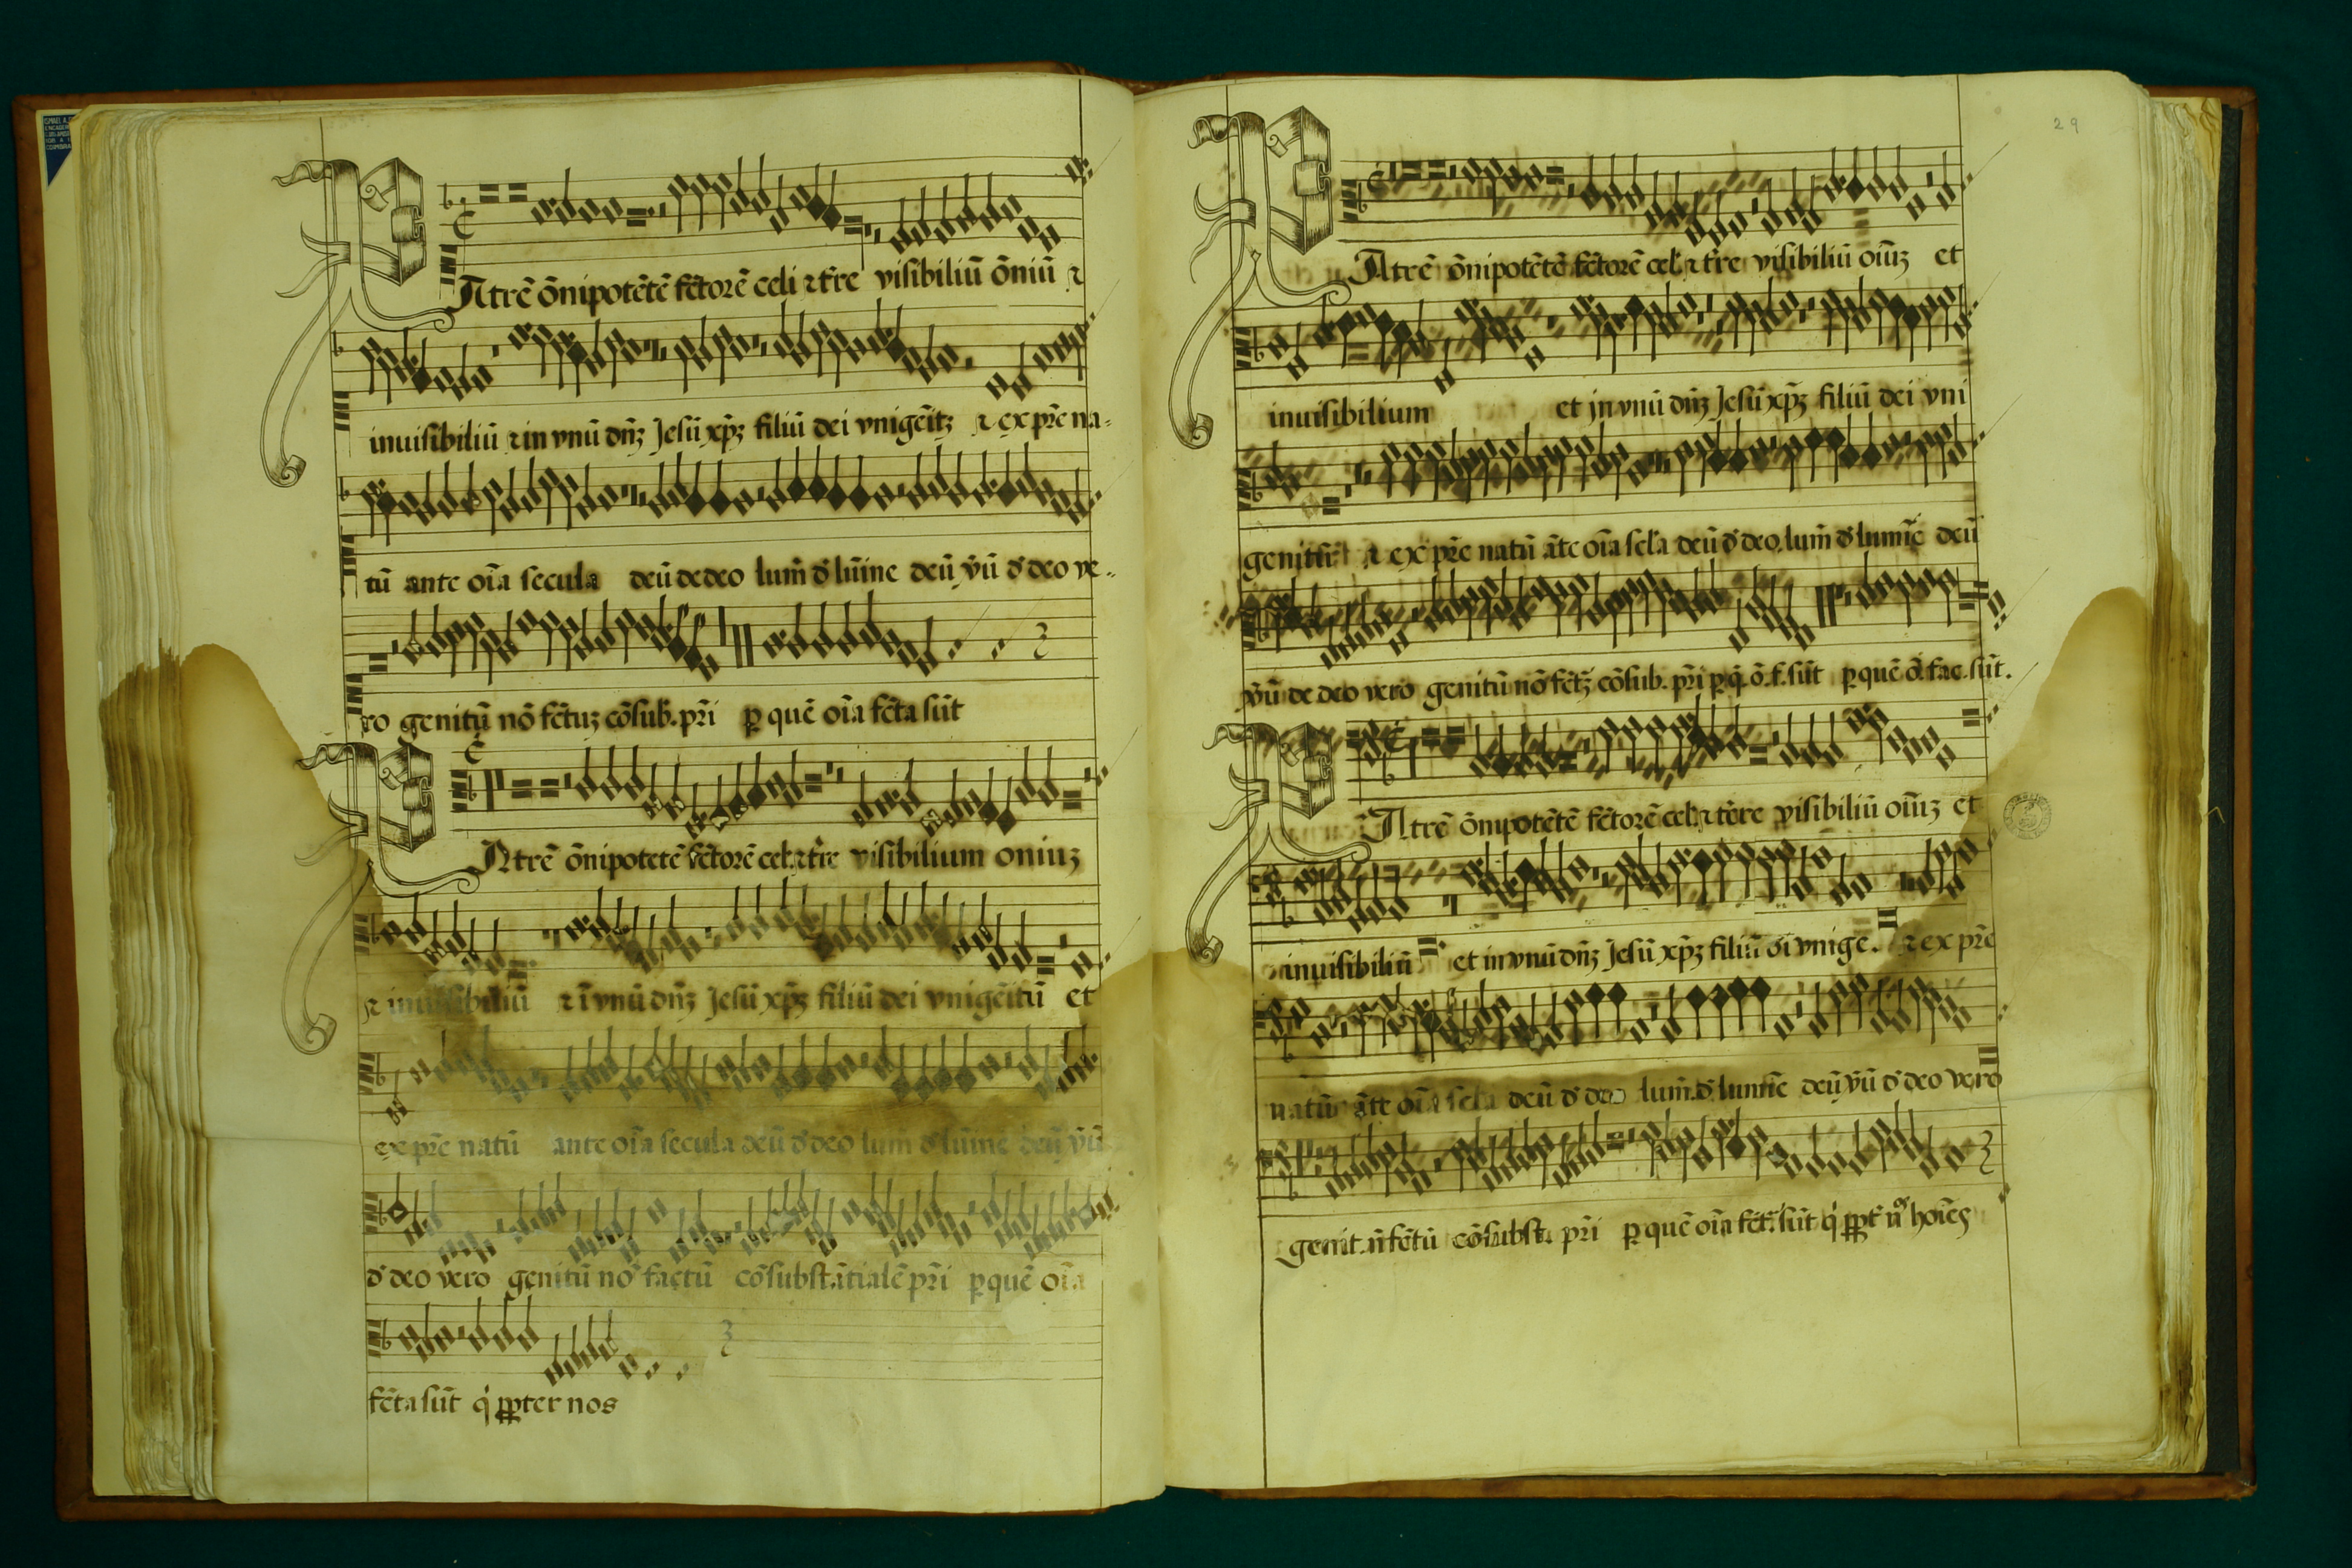 PAtrē õnipotētē fc̄torē celi ⁊ t̄re visibiliū õniū ⁊
inuisibiliū ⁊ in vnū dn̄ʒ Jesū xp̄ʒ filiū dei vnigēitʒ ⁊ ex pr̄e na-
tū ante oīa secula deū de deo lum̄ d' lūine deū v̄ū d' deo ve-
ro genitū nō fc̄tuʒ cōsub. pr̄i ꝑ quē oīa fc̄ta sūt
PAtrē õnipotetē fc̄torē cel. ⁊ t̄re visibilium oniuʒ
⁊ inuisibiliū ⁊ ī vnū dn̄ʒ Jesū xp̄ʒ filiū dei vnigēitū et
ex pr̄e natū ante oīa secula deū d' deo lum d' lūine deū v̄ū
d' deo vero genitū nō factū cōsubstātialē pr̄i ꝑ quē oīa
fc̄ta sūt q' ꝓpter nos
29
PAtrē õnipotētē fc̄torē cel' ⁊ t̄re visibiliū oiūʒ et
inuisibilium et jn vnū dn̄ʒ Jesū xp̄ʒ filiū dei vni
genitū ⁊ ex pr̄e natū āte oīa scl'a deū d' deo lum̄ d' lumīe deū
v̄ū de deo vero genitū nō fc̄tʒ cōsub. pr̄i ꝑ q̄. õ. f. sūt ꝑ quē õ. fac. sūt.
PAtrē õnipotētē fc̄torē cel. ⁊ terre visibiliū oiūʒ et
inuisibiliū et in vnū dn̄ʒ Jesū xp̄ʒ filiū di vnige. ⁊ ex pr̄e
natū āte oīa scla deū d' deo lum̄. d' lumīe deū v̄ū d' deo vero
genit. n̄ fc̄tū cōsubst. pr̄i ꝑ quē oīa fc̄t. sūt q' ꝓpt' n° hoīes